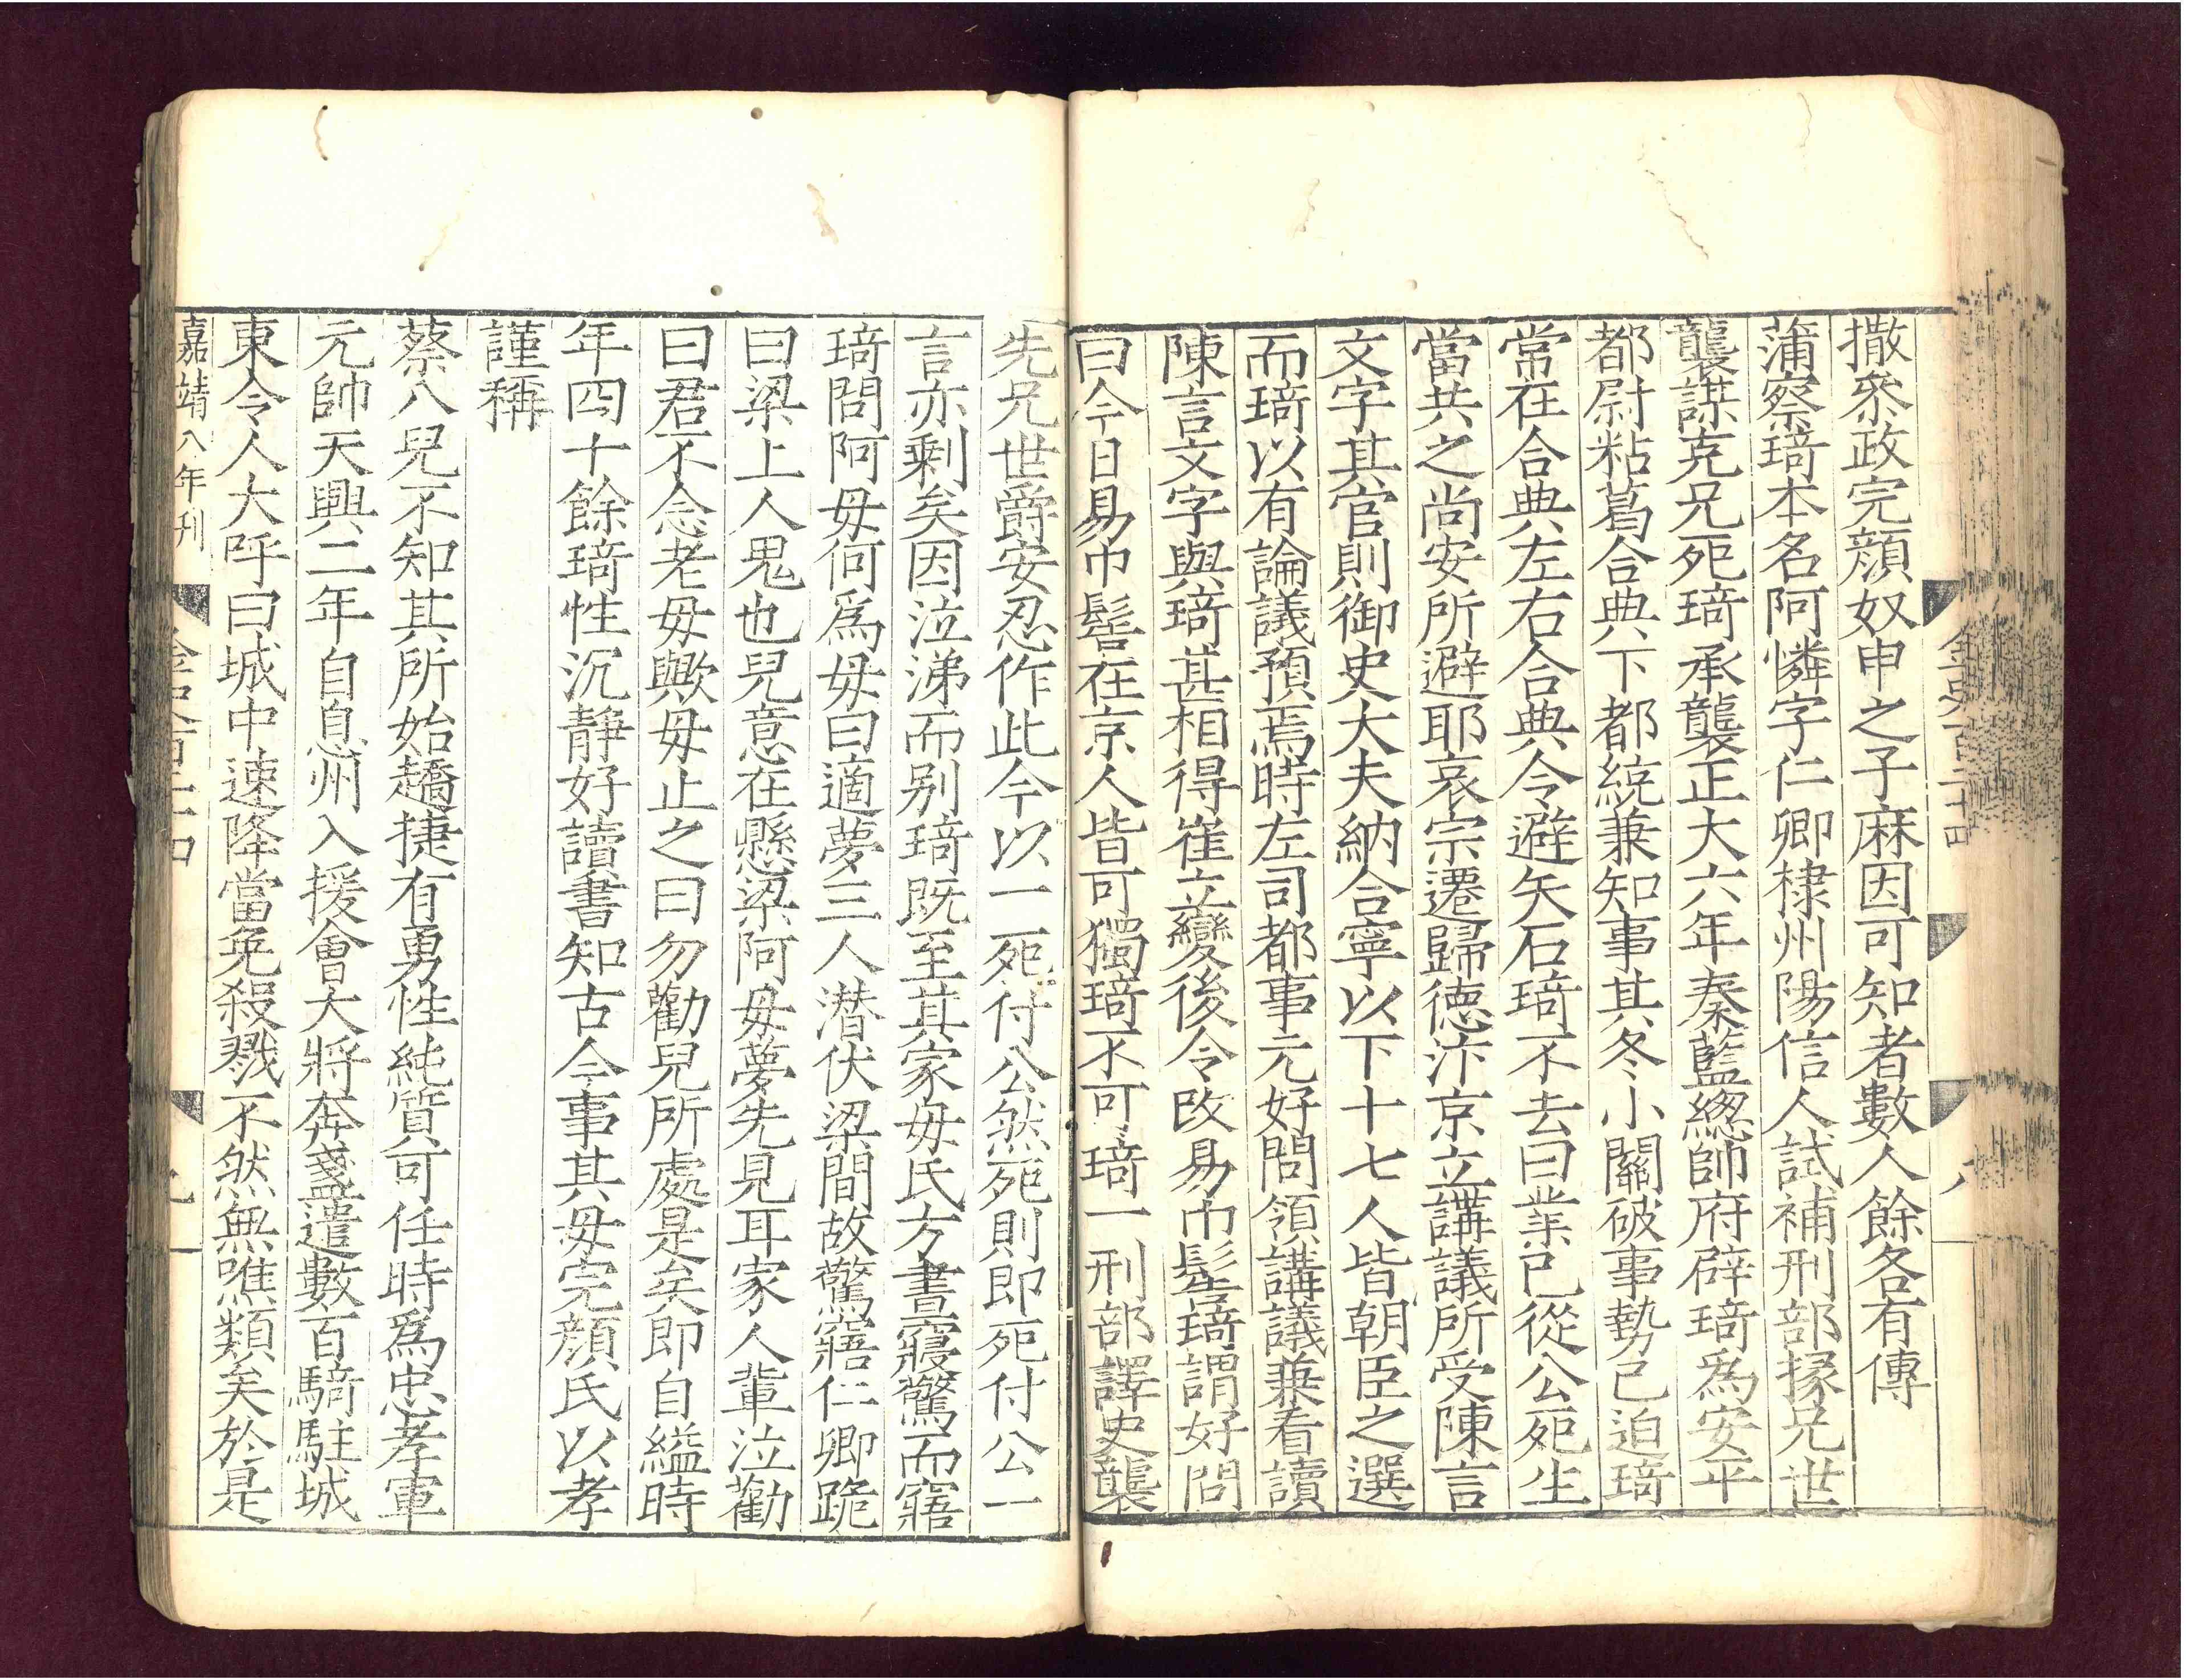 金史百二十四
八
撒叅政完顔奴申之子麻因可知者數人餘各有傳
蒲察琦本名阿憐字仁卿棣州陽信人試補刑部掾兄世
襲謀克兄死琦承襲正大六年秦藍緫帥府辟琦爲安平
都尉粘葛合典下都統兼知事其冬小關破事勢已迫琦
常在合典左右合典令避矢石琦不去曰業已從公死生
當共之尚安所避耶哀宗遷歸德汴京立講議所受陳言
文字其官則御史大夫納合寧以下十七人皆朝臣之選
而琦以有論議預焉時左司都事元好問領講議兼看讀
陳言文字與琦甚相得崔立變後令改易巾髻琦謂好問
曰今日易巾髻在京人皆可獨琦不可琦一刑部譯史襲
先兄世爵安忍作此今以一死付公然死則即死付公一
言亦剩矣因泣涕而别琦既至其家毋氏方晝寢驚而寤
琦問阿毋何爲毋曰適夢三人潜伏梁間故驚寤仁卿跪
曰梁上人鬼也兒意在懸梁阿毋夢先見耳家人輩泣勸
曰君不念老毋歟毋止之曰勿勸兒所處是矣即自縊時
年四十餘琦性沉静好讀書知古今事其毋完顔氏以孝
謹稱
蔡八兒不知其所始趫捷有勇性純質可任時爲忠孝軍
元帥天興二年自息州入援會大將奔盞遣數百騎駐城
東令人大呼曰城中速降當免殺戮不然無噍類矣於是
嘉靖八年刊